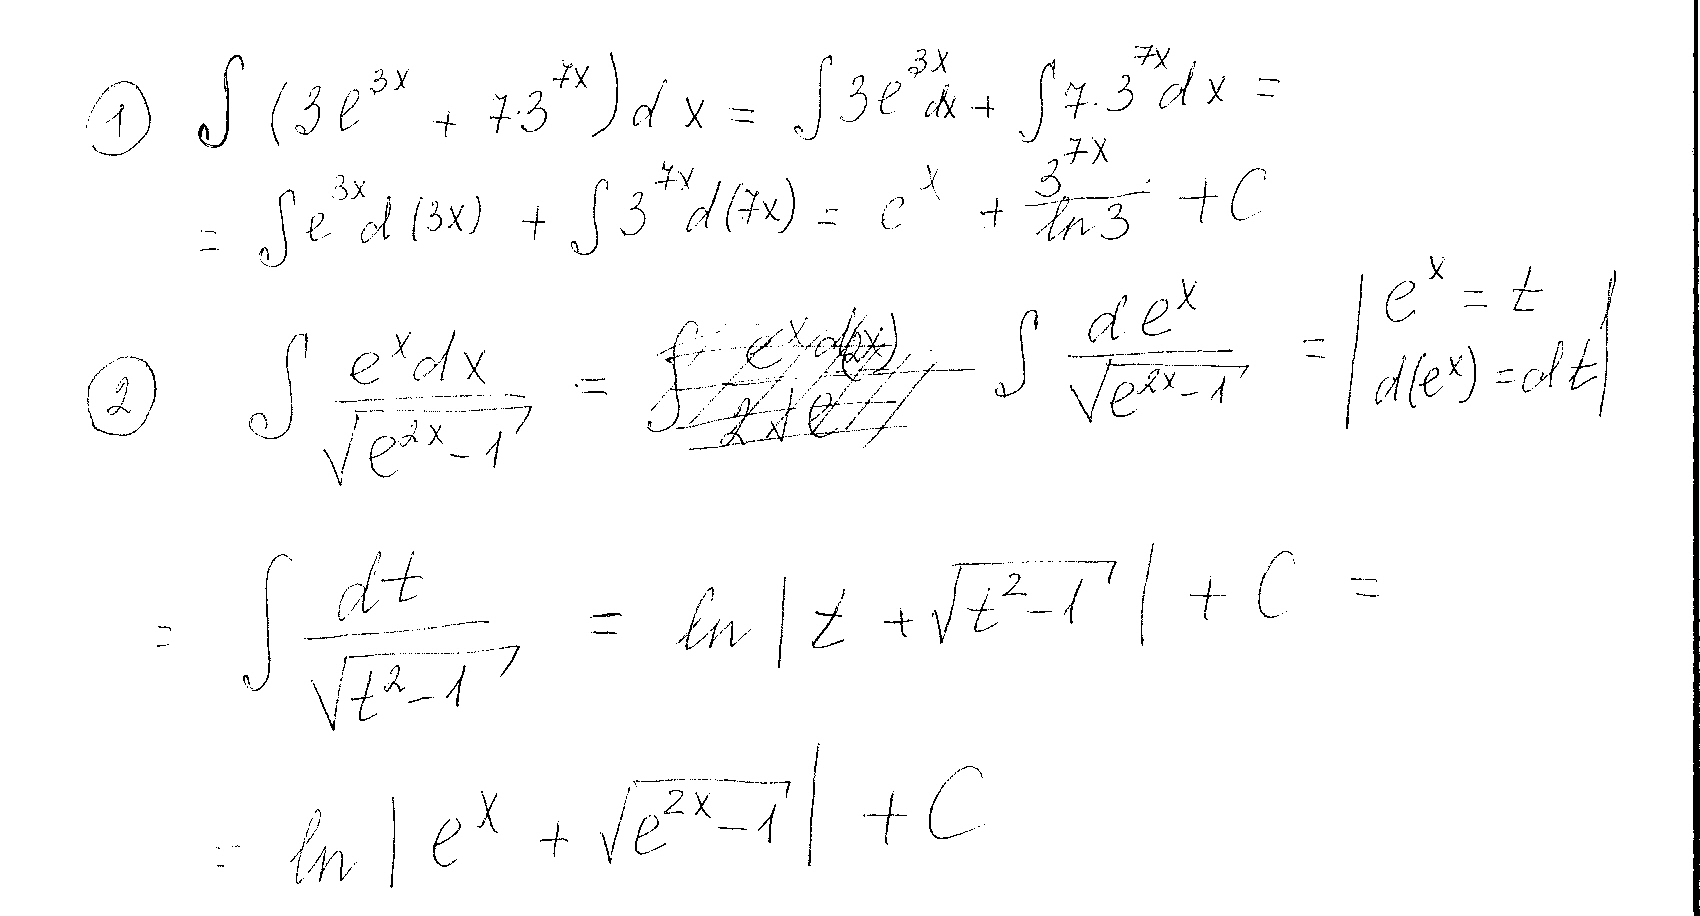 ① ∫ (3e^{3x} + 7·3^{7x}) dx = ∫3e^{3x}dx + ∫7·3^{7x}dx =
= ∫e^{3x}d(3x) + ∫3^{7x}d(7x) = e^x + \frac{3^{7x}}{ln3} + C
② ∫ \frac{e^x dx}{\sqrt{e^{2x}-1}} = ∫ \frac{de^x}{\sqrt{e^{2x}-1}} = | e^x = t d(e^x) = dt |
= ∫ \frac{dt}{\sqrt{t^2-1}} = ln | t + \sqrt{t^2-1} | + C =
= ln | e^x + \sqrt{e^{2x}-1} | + C